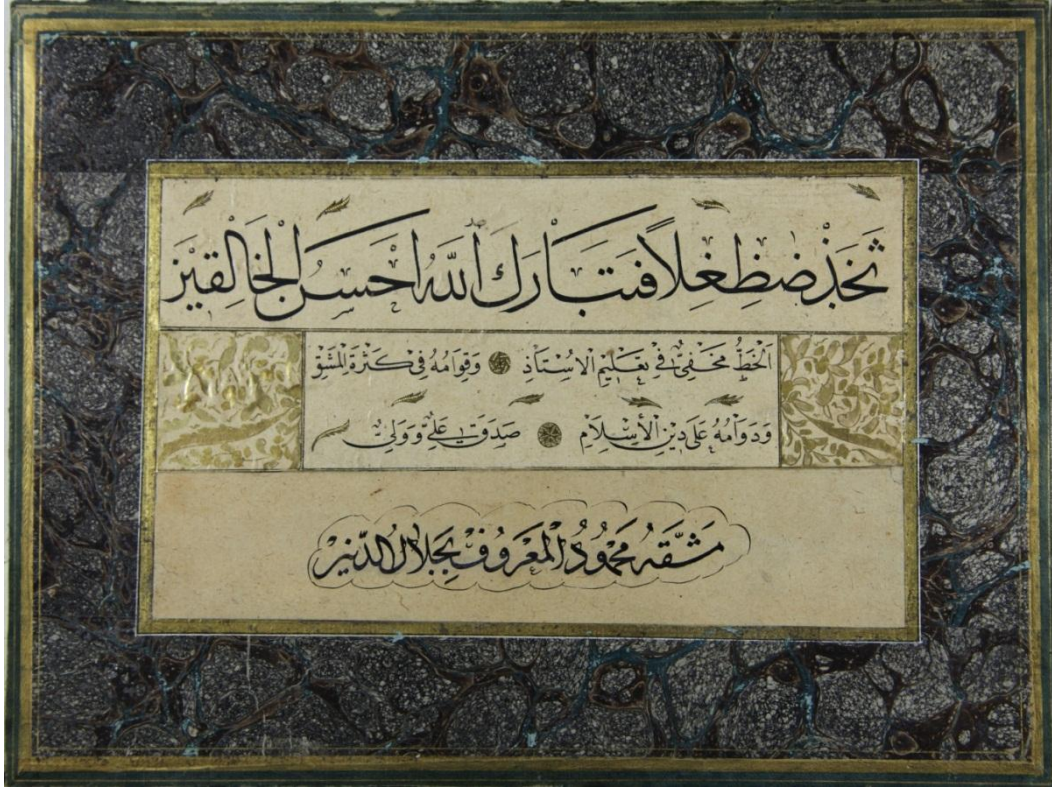 ثَخَذْ ضَظِغٍلاً فَتَبَارَكَ اللّٰهُ اَحْسَنُ الْخَالِقِينَ
اَلْخَطُّ مَخْفِىٌّ فِى تَعْلِيمِ الْاُسْتَاذِ وَقِوَامُهُ فِى كَثْرَةِ الْمَشْقِ
وَدَوَامُهُ عَلَى دِينِ الْاِسْلَامِ صَدَقَ يَا عَلِىُّ وَوَلِىُّ
مَشَّقَهُ مَحْمُودُ الْمَعْرُوفْ بِجَلَالِ الدِّينِ